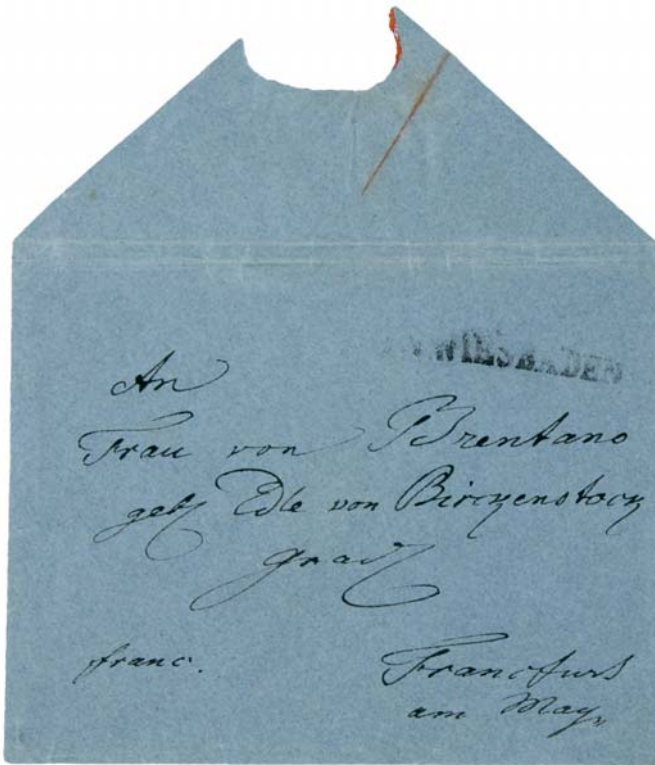 WIESBADEN
An
Frau von Brentano
geb Edle von Birckenstock
franc. Francfurt
am Mayn